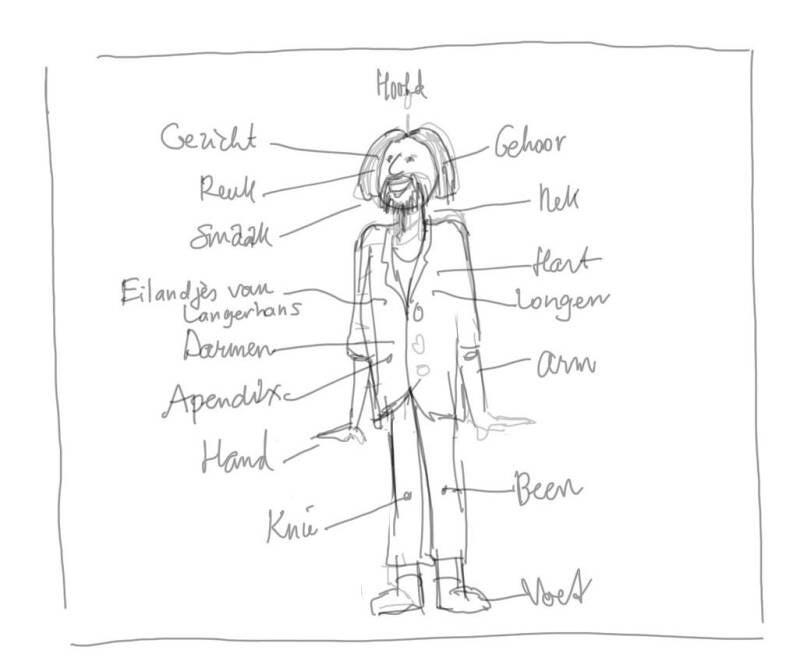 Hoofd
Gezicht
Gehoor
Reuk
Nek
Smaak
Hart
Eilandjes van
Langerhans
Longen
Darmen
Arm
Apendix
Hand
Been
Knie
Voet